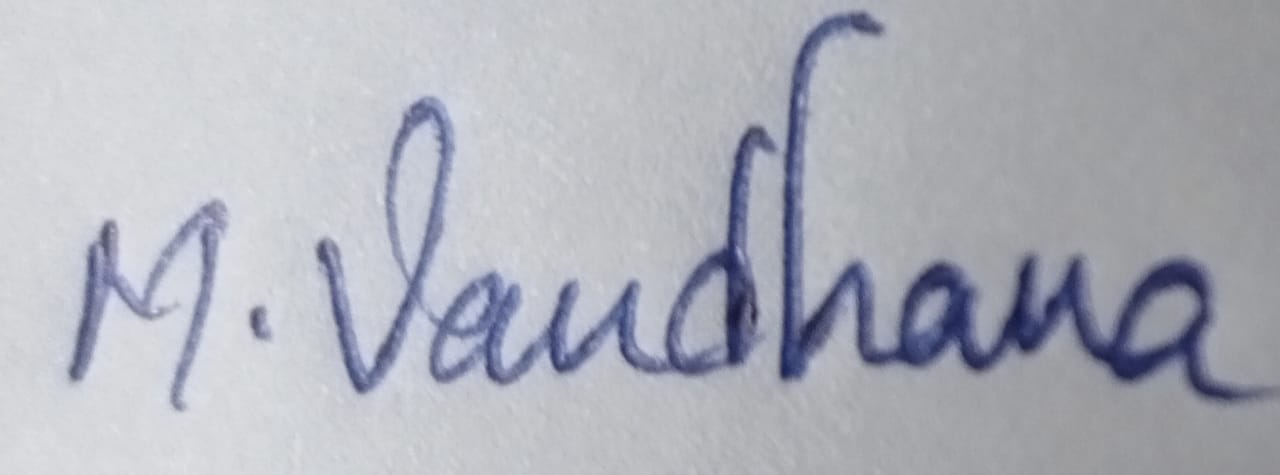 M. Vandhana